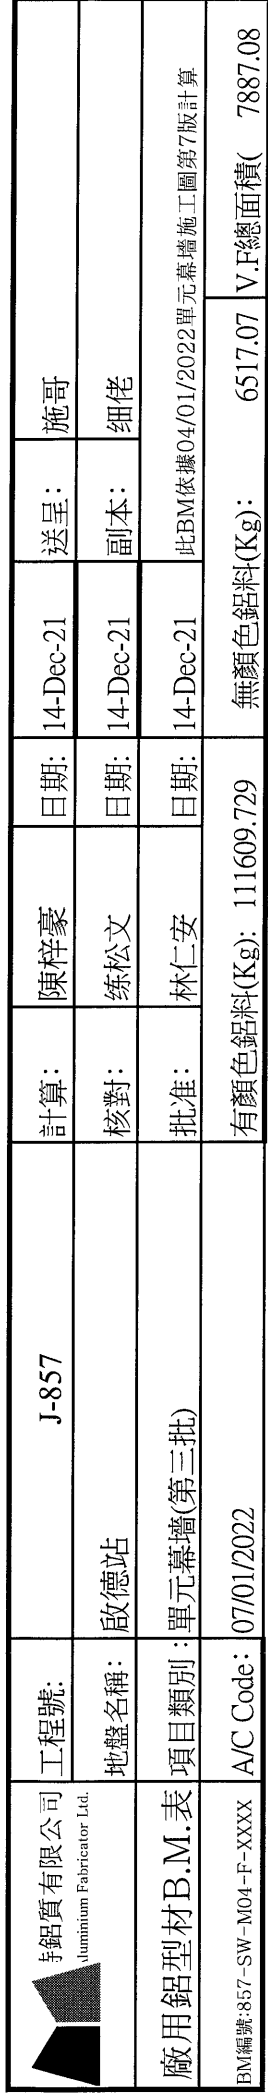 鋁質有限公司
luminium Fabricator Ltd.
工程號: J-857 計算: 陳梓豪 日期: 14-Dec-21 送呈: 施哥
地盤名稱: 啟德站 核對: 练松文 日期: 14-Dec-21 副本: 细佬
廠用鋁型材B.M.表 項目類別: 單元幕墻(第三批) 批准: 林仁安 日期: 14-Dec-21 此BM依據04/01/2022單元幕墻施工圖第7版計算
BM編號:857-SW-M04-F-XXXX A/C Code: 07/01/2022 有顏色鋁料(Kg): 111609.729 無顏色鋁料(Kg): 6517.07 V.F總面積( 7887.08